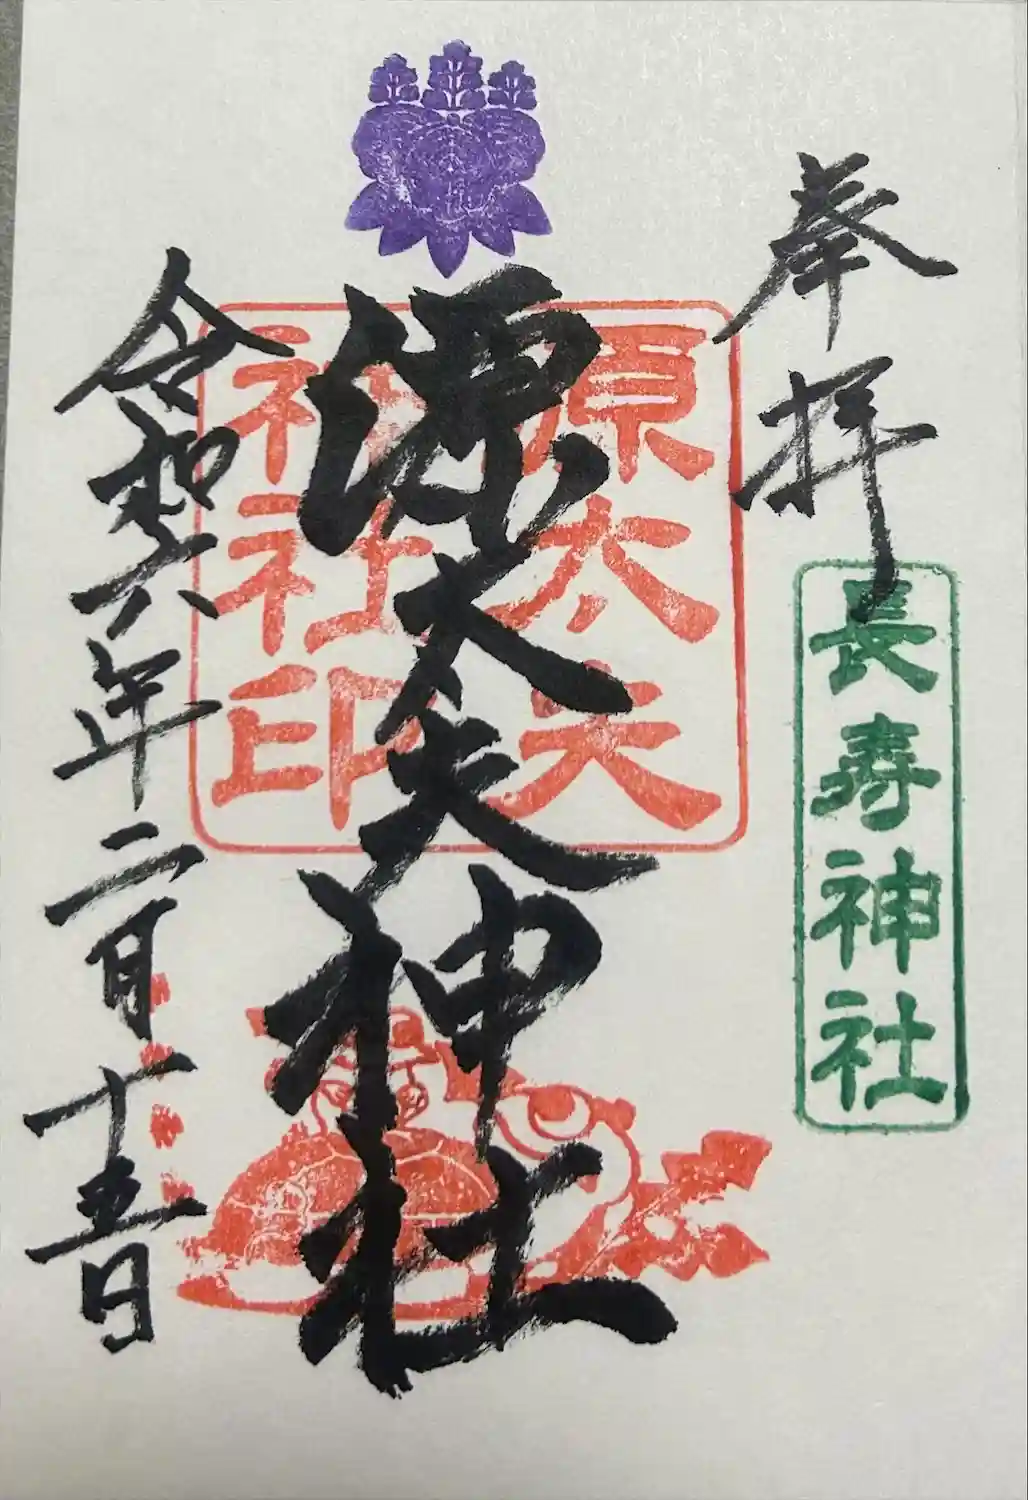 奉拝
長寿神社
源太夫神社
源太夫
神社印
令和六年二月十五日